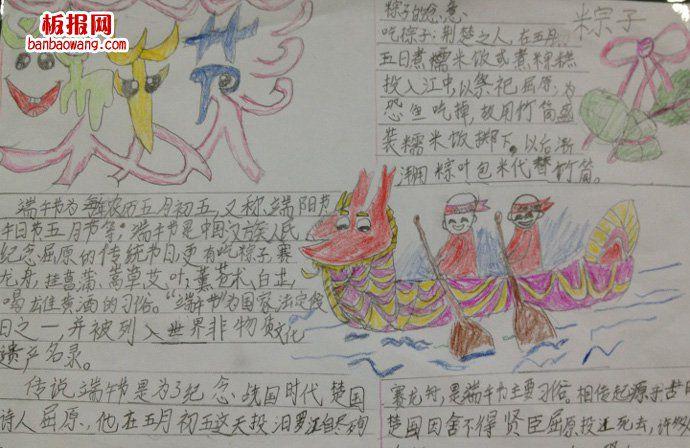 板报网
banbaowang.com
粽子
粽子的意:
吃粽子:荆楚之人,在五月
五日煮糯米饭或煮粽糕
投入江中,以祭祀屈原,为
恐 吃掉,故用竹筒盛
装糯米饭掷下,以后渐
用粽叶包米代替竹筒。
端午节为每年农历五月初五,又称端阳节
午日节五月节等。端午节是中国汉族人民
纪念屈原的传统节日,更有吃粽子赛
龙舟,挂菖蒲、蒿草艾叶,薰苍术,白芷,
喝雄黄酒的习俗。“端午节”为国家法定假
日之一,并被列入世界非物质文化
遗产名录。
传说端午节是为了纪念战国时代楚国
诗人屈原,他在五月初五这天投汨罗江自尽殉
赛龙舟,是端午节主要习俗。相传起源于古
楚国因舍不得贤臣屈原投江死去,许多